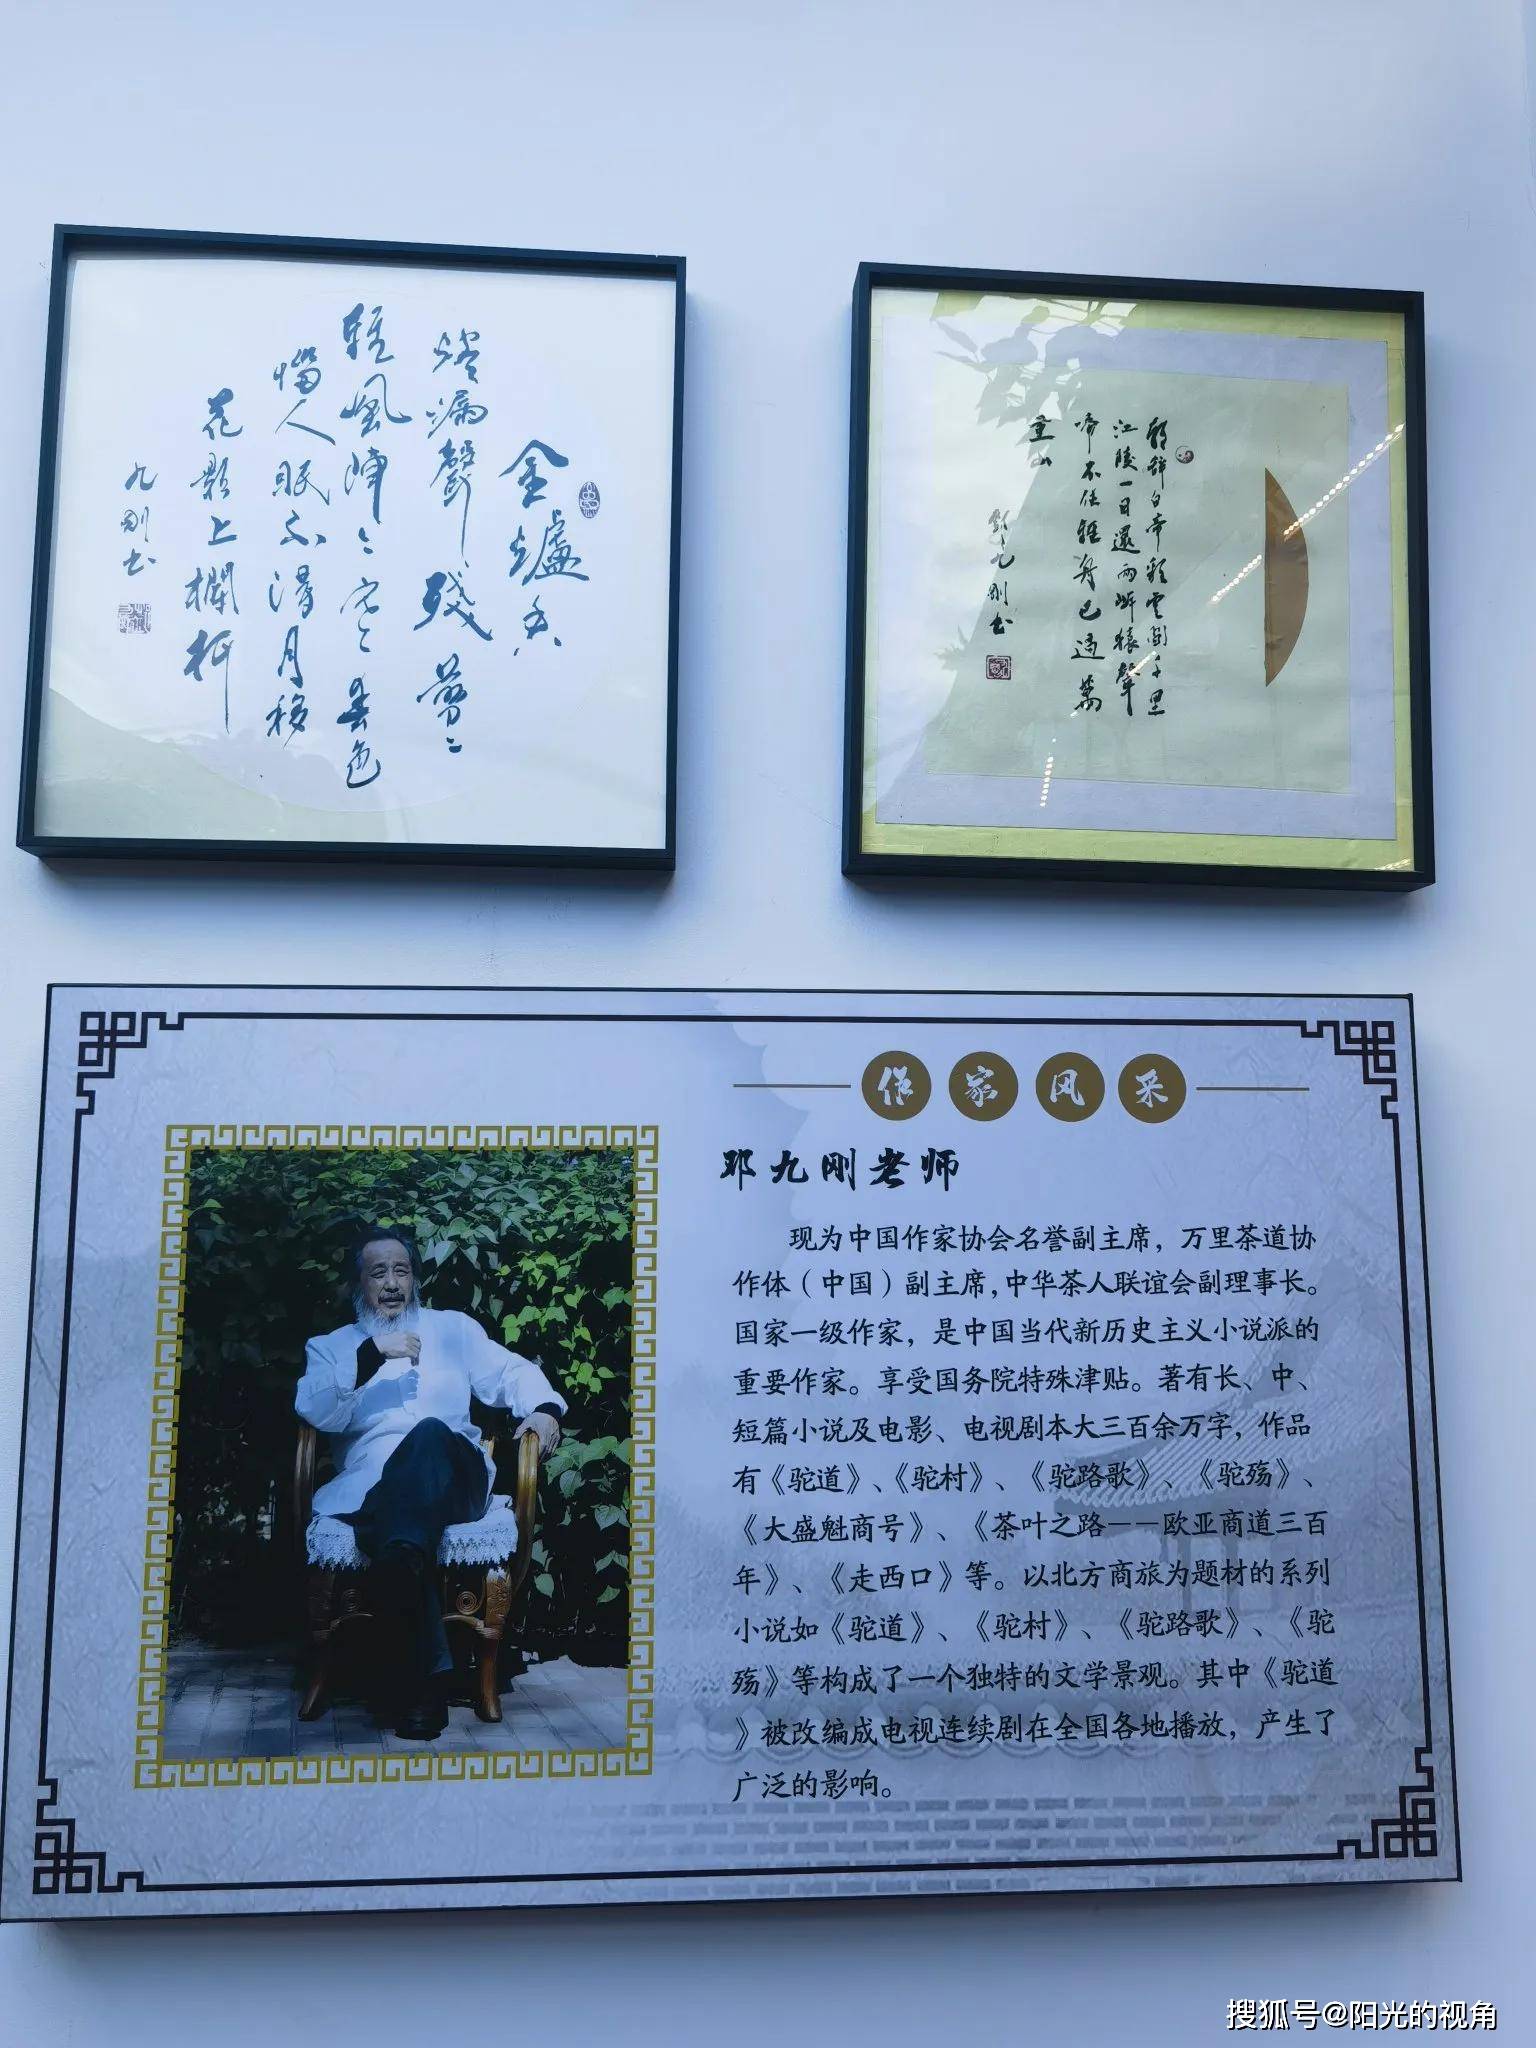 金爐香
燼漏聲殘翦々
輕風陣々寒々春色
惱人眠不得月移
花影上欄杆
九剛书
朝辞白帝彩雲間千里
江陵一日還兩岸猿聲
啼不住輕舟已過萬
重山
鄧九剛书
作家风采
邓九刚老师
现为中国作家协会名誉副主席，万里茶道协
作体（中国）副主席，中华茶人联谊会副理事长。
国家一级作家，是中国当代新历史主义小说派的
重要作家。享受国务院特殊津贴。著有长、中、
短篇小说及电影、电视剧本大三百余万字，作品
有《驼道》、《驼村》、《驼路歌》、《驼殇》、
《大盛魁商号》、《茶叶之路——欧亚商道三百
年》、《走西口》等。以北方商旅为题材的系列
小说如《驼道》、《驼村》、《驼路歌》、《驼
殇》等构成了一个独特的文学景观。其中《驼道
》被改编成电视连续剧在全国各地播放，产生了
广泛的影响。
搜狐号@阳光的视角